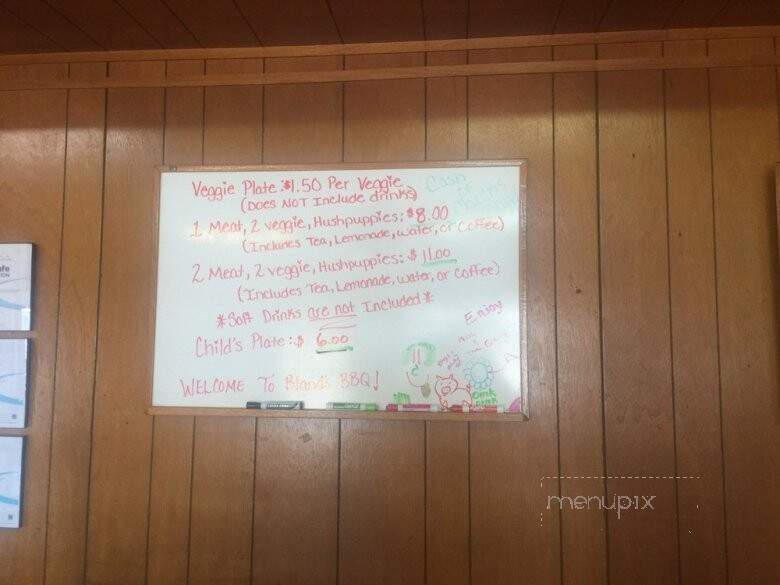 Veggie Plate: $1.50 Per Veggie
(Does NOT Include drinks)
Cash
1 Meat, 2 veggie, Hushpuppies: $8.00
(Includes Tea, Lemonade, water, or Coffee)
2 Meat, 2 veggie, Hushpuppies: $11.00
(Includes Tea, Lemonade, water, or Coffee)
*Soft Drinks are not Included*
Enjoy
Child's Plate: $ 6.00
WELCOME To Bland's BBQ!
oink
oink
menupix